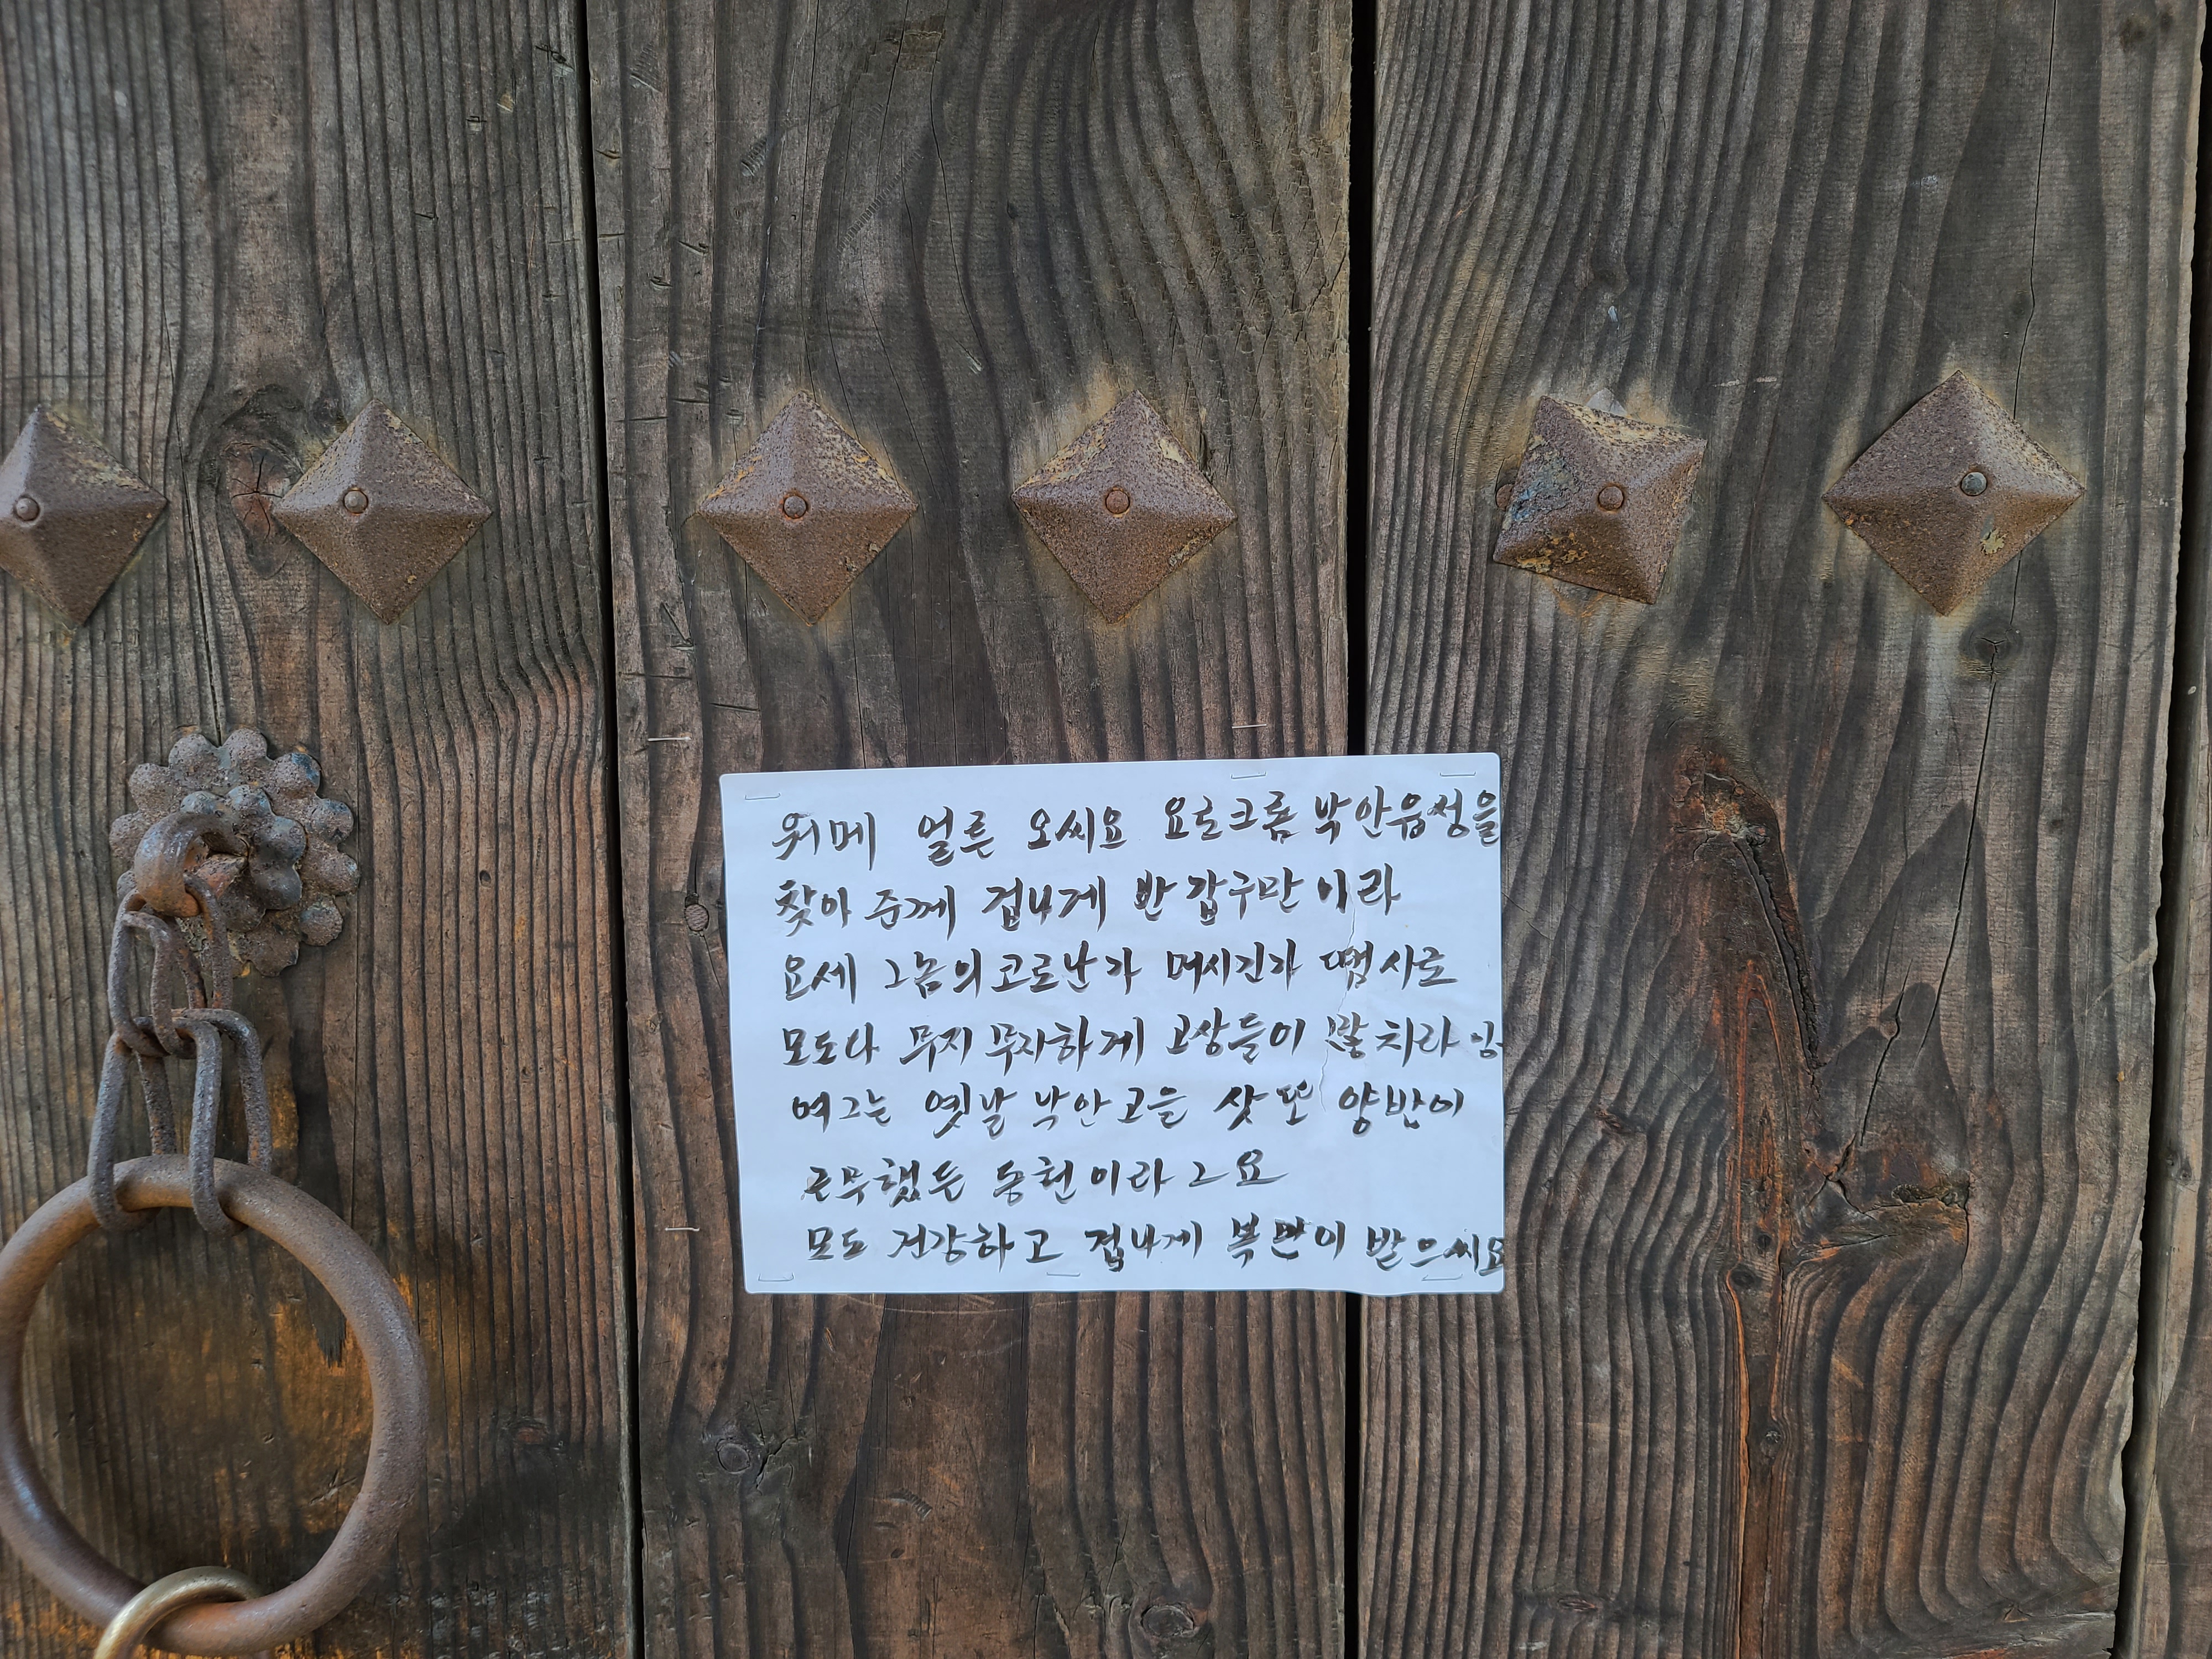 워메 얼른 오씨요 요로크롬 낙안읍성을
찾아 준께 겁나게 반갑구만이라
요세 그놈의 코로난가 머시긴가 땜시로
모도다 무지무자하게 고상들이 많치라잉
여그는 옛날 낙안고을 삿또 양반이
근무했든 동헌이라 그요
모도 건강하고 겁나게 복만이 받으씨요